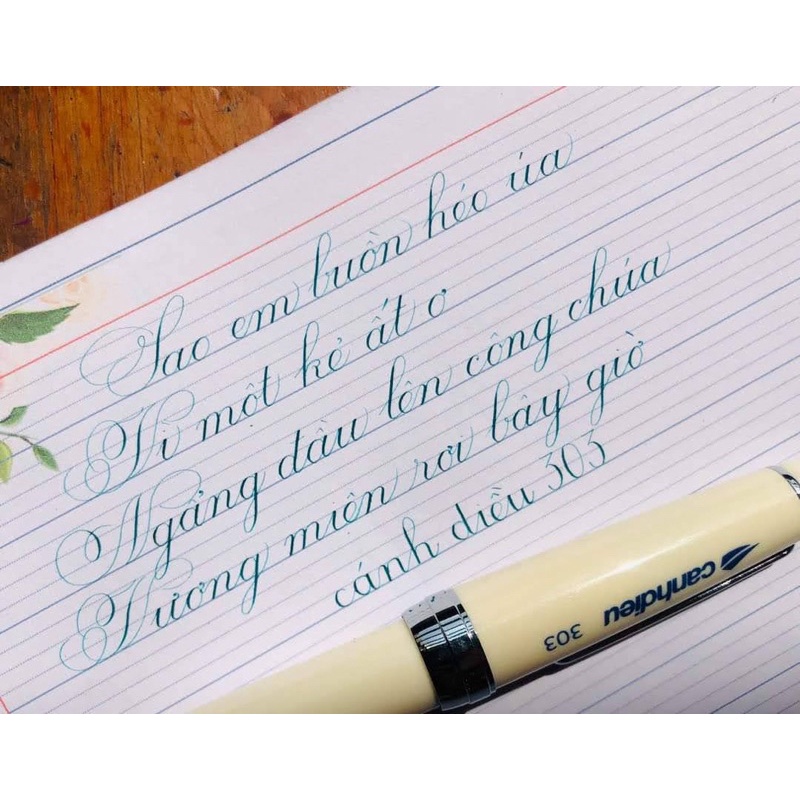 Sao em buồn héo úa
Vì một kẻ ất ơ
Ngẩng đầu lên công chúa
Vương miện rơi bây giờ
cánh diều 303
canhdieu
303